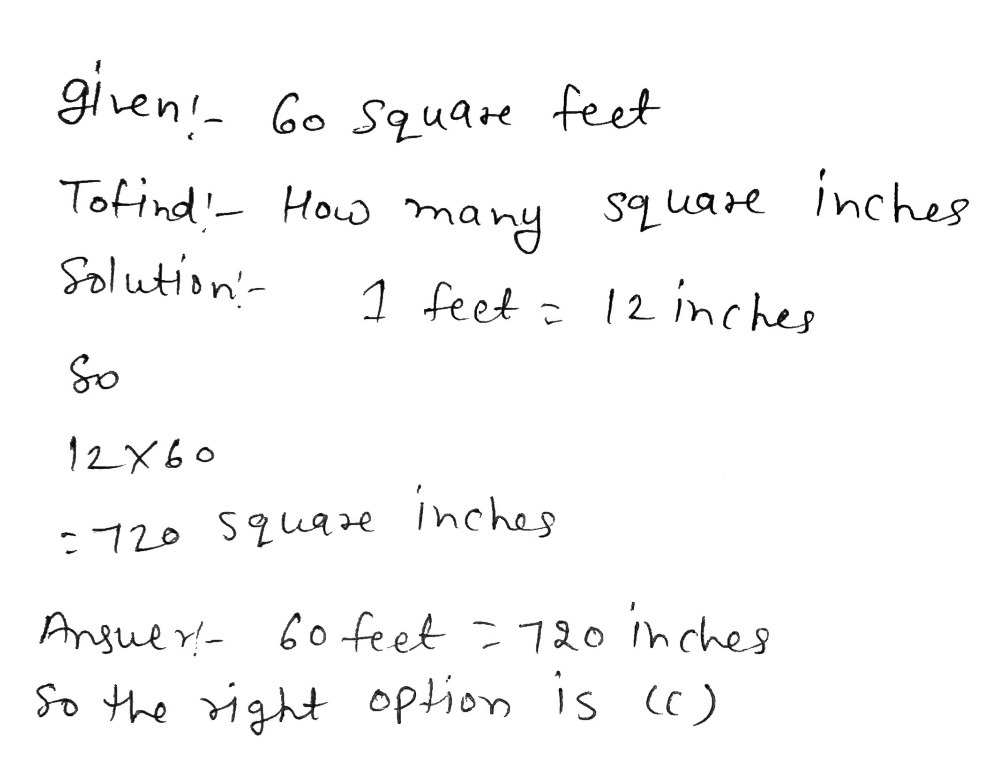 given:- 60 square feet
Tofind:- How many square inches
Solution:- 1 feet = 12 inches
So
12X60
=720 square inches
Answer:- 60 feet = 720 inches
So the right option is (C)